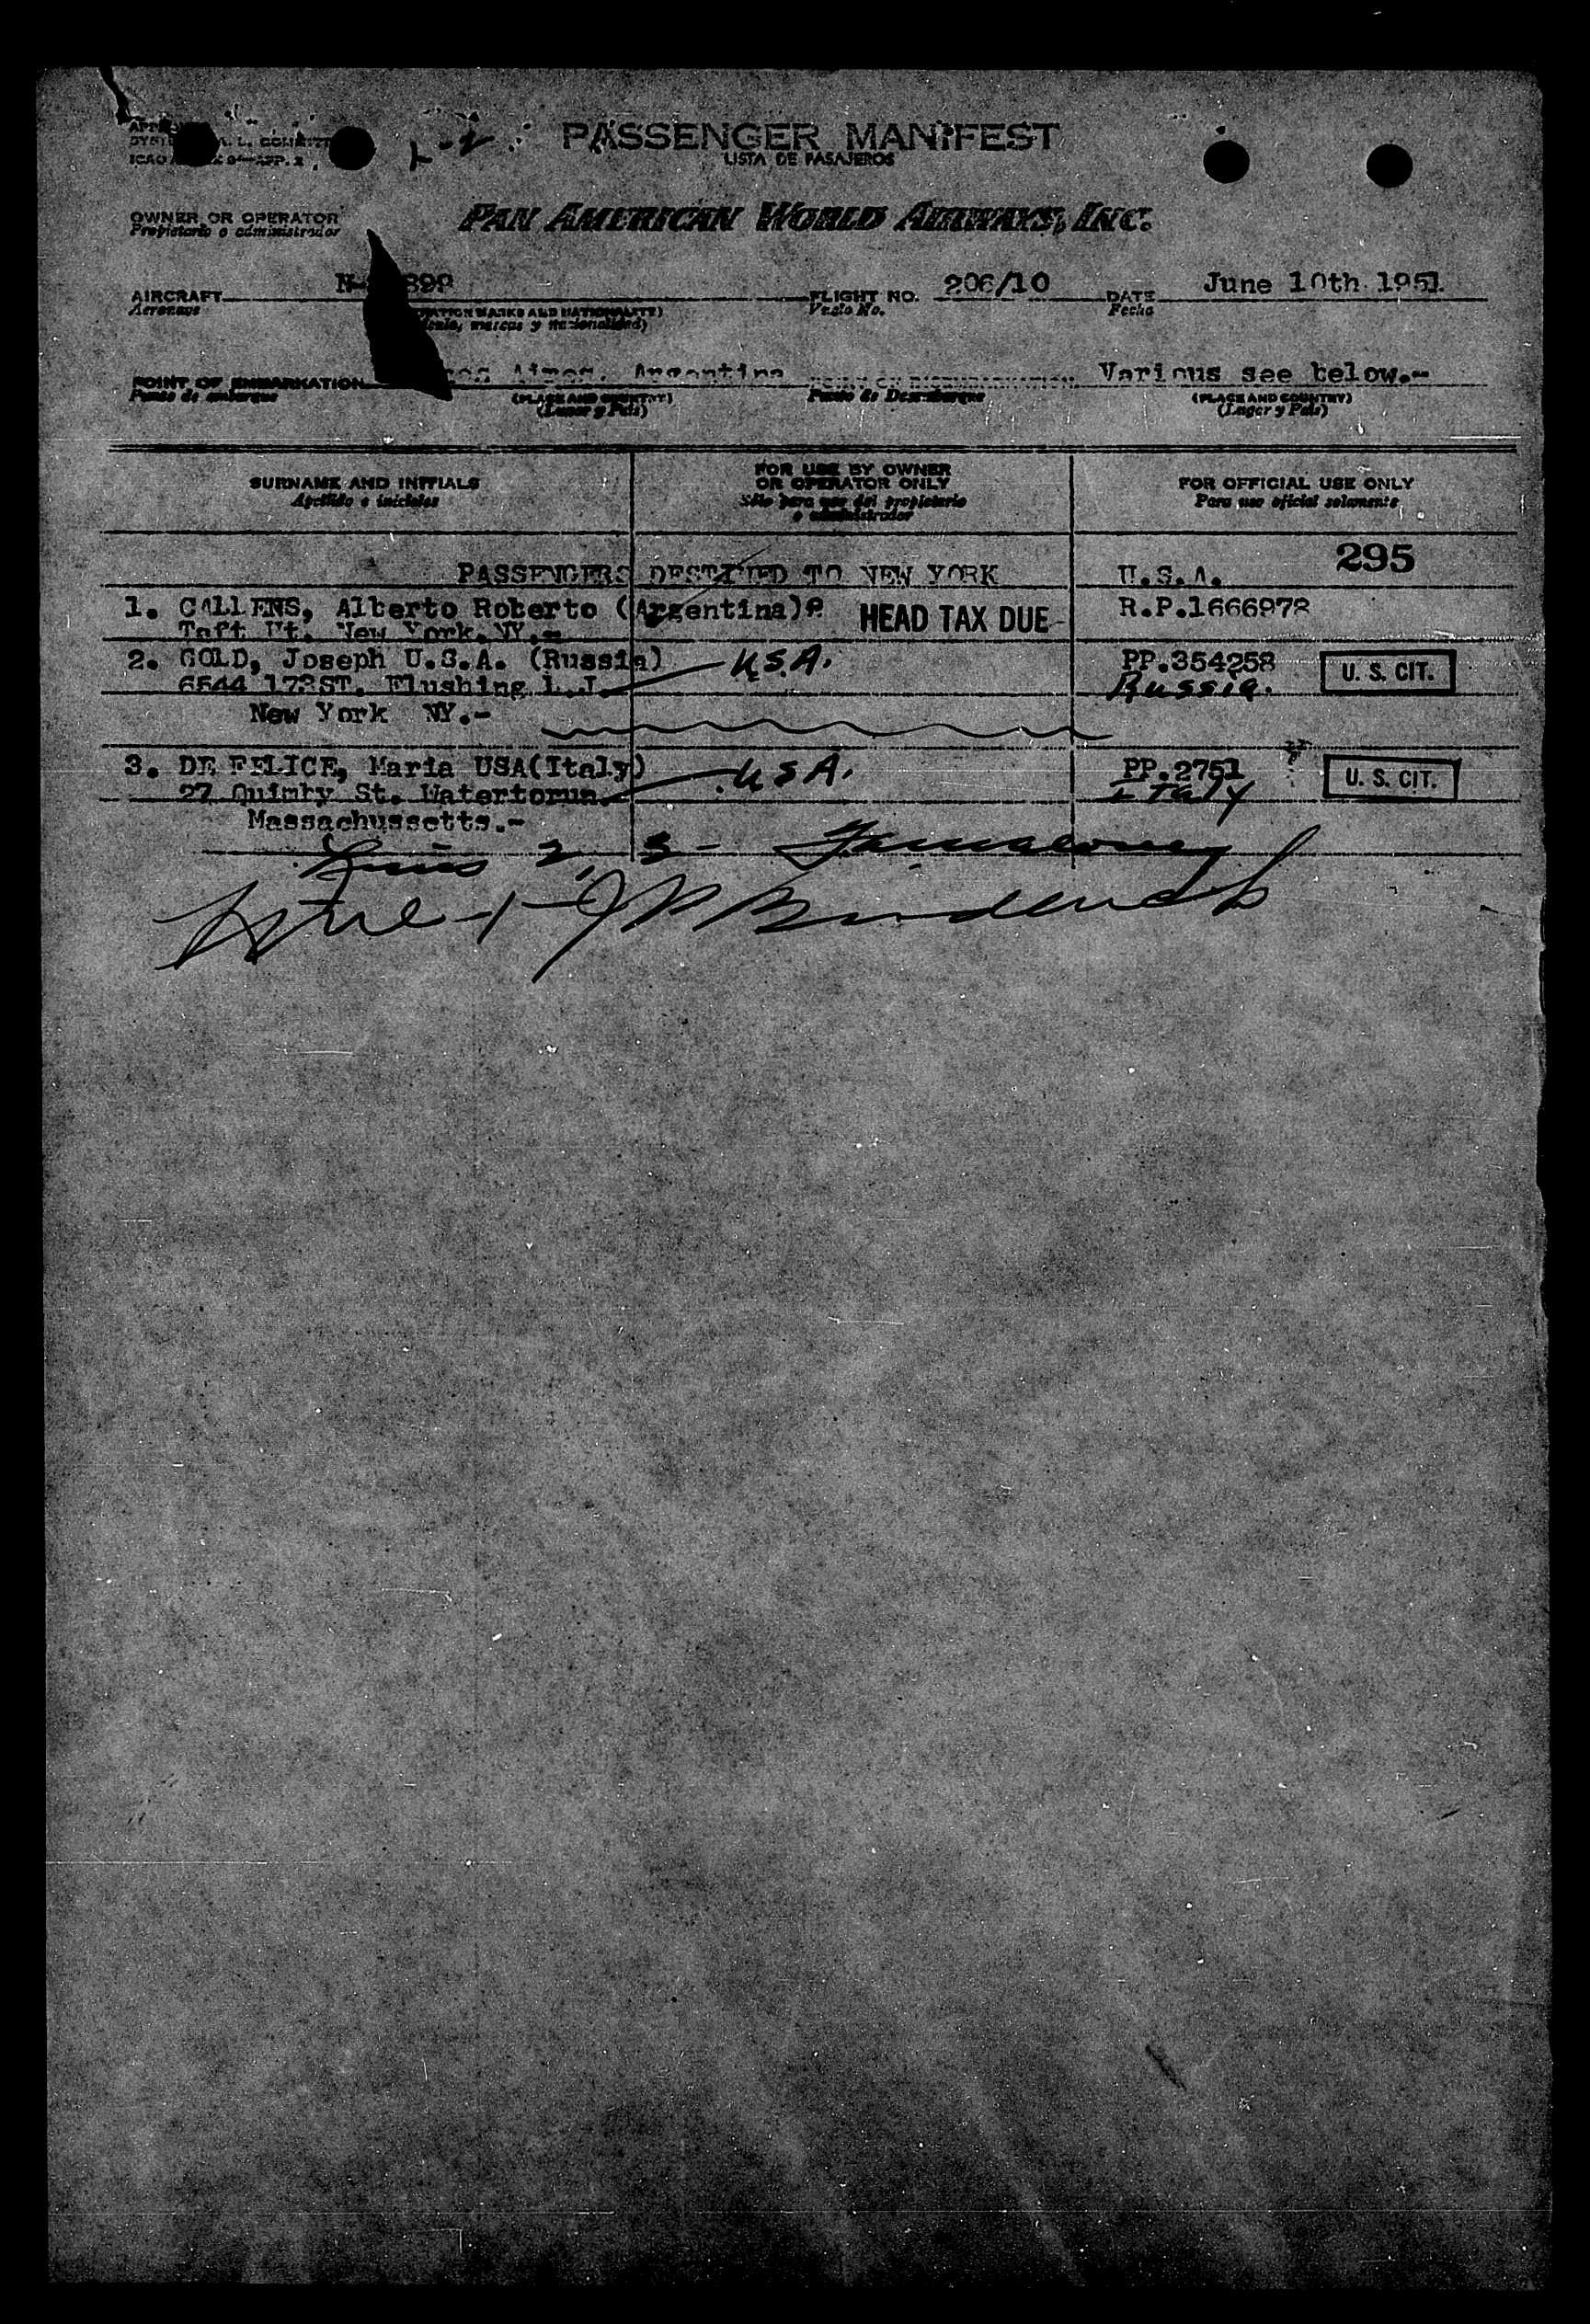 PASSENGER MANIFEST
LISTA DE PASAJEROS
OWNER OR OPERATOR
Propietario o administrador
PAN AMERICAN WORLD AIRWAYS, INC.
AIRCRAFT FLIGHT NO. 206/10 DATE June 10th 1951
Aeronave Vuelo No. Fecha
POINT OF EMBARKATION Aires, Argentina Various see below.-
Punto de embarque (PLACE AND COUNTRY) Punto de Desembarque (PLACE AND COUNTRY)
(Lugar y País) (Lugar y País)
SURNAME AND INITIALS
Apellido e iniciales
FOR USE BY OWNER
OR OPERATOR ONLY
Sólo para uso del propietario
o administrador
FOR OFFICIAL USE ONLY
Para uso oficial solamente
295
PASSENGERS DESTINED TO NEW YORK U.S.A.
1. CALLENS, Alberto Roberto (Argentina) HEAD TAX DUE R.P.1666978
Taft Ht. New York.NY.-
2. GOLD, Joseph U.S.A. (Russia) U.S.A. PP.354258 U. S. CIT.
6544 173ST. Flushing L.I. Russia.
New York NY.-
3. DE FELICE, Maria USA(Italy) USA. PP.2751 U. S. CIT.
27 Quimby St. Italy
Massachussetts.-
Lines 2, 3-
Line 1-